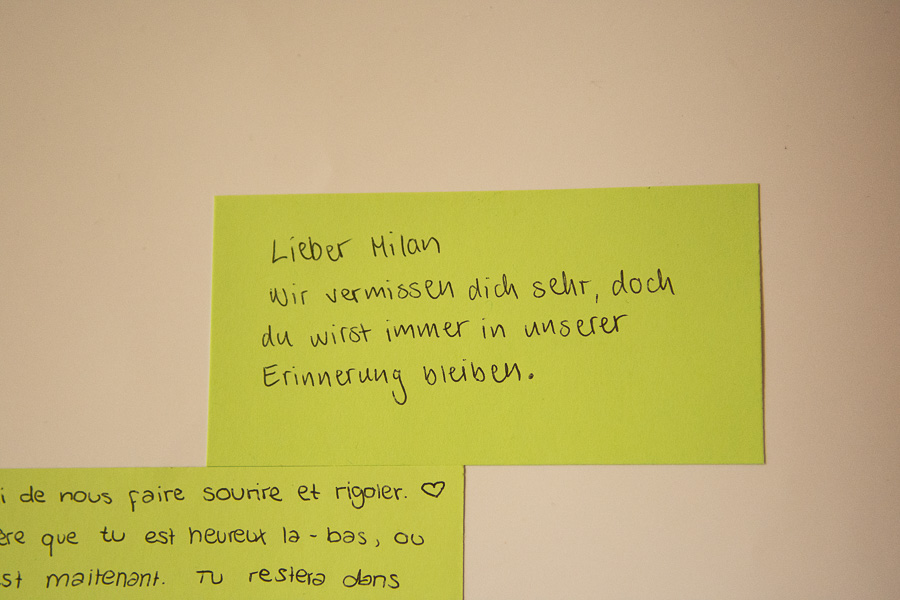 Lieber Milan
Wir vermissen dich sehr, doch
du wirst immer in unserer
Erinnerung bleiben.
de nous faire sourire et rigoler. ♡
que tu est heureux la-bas, ou
maitenant. Tu restera dans